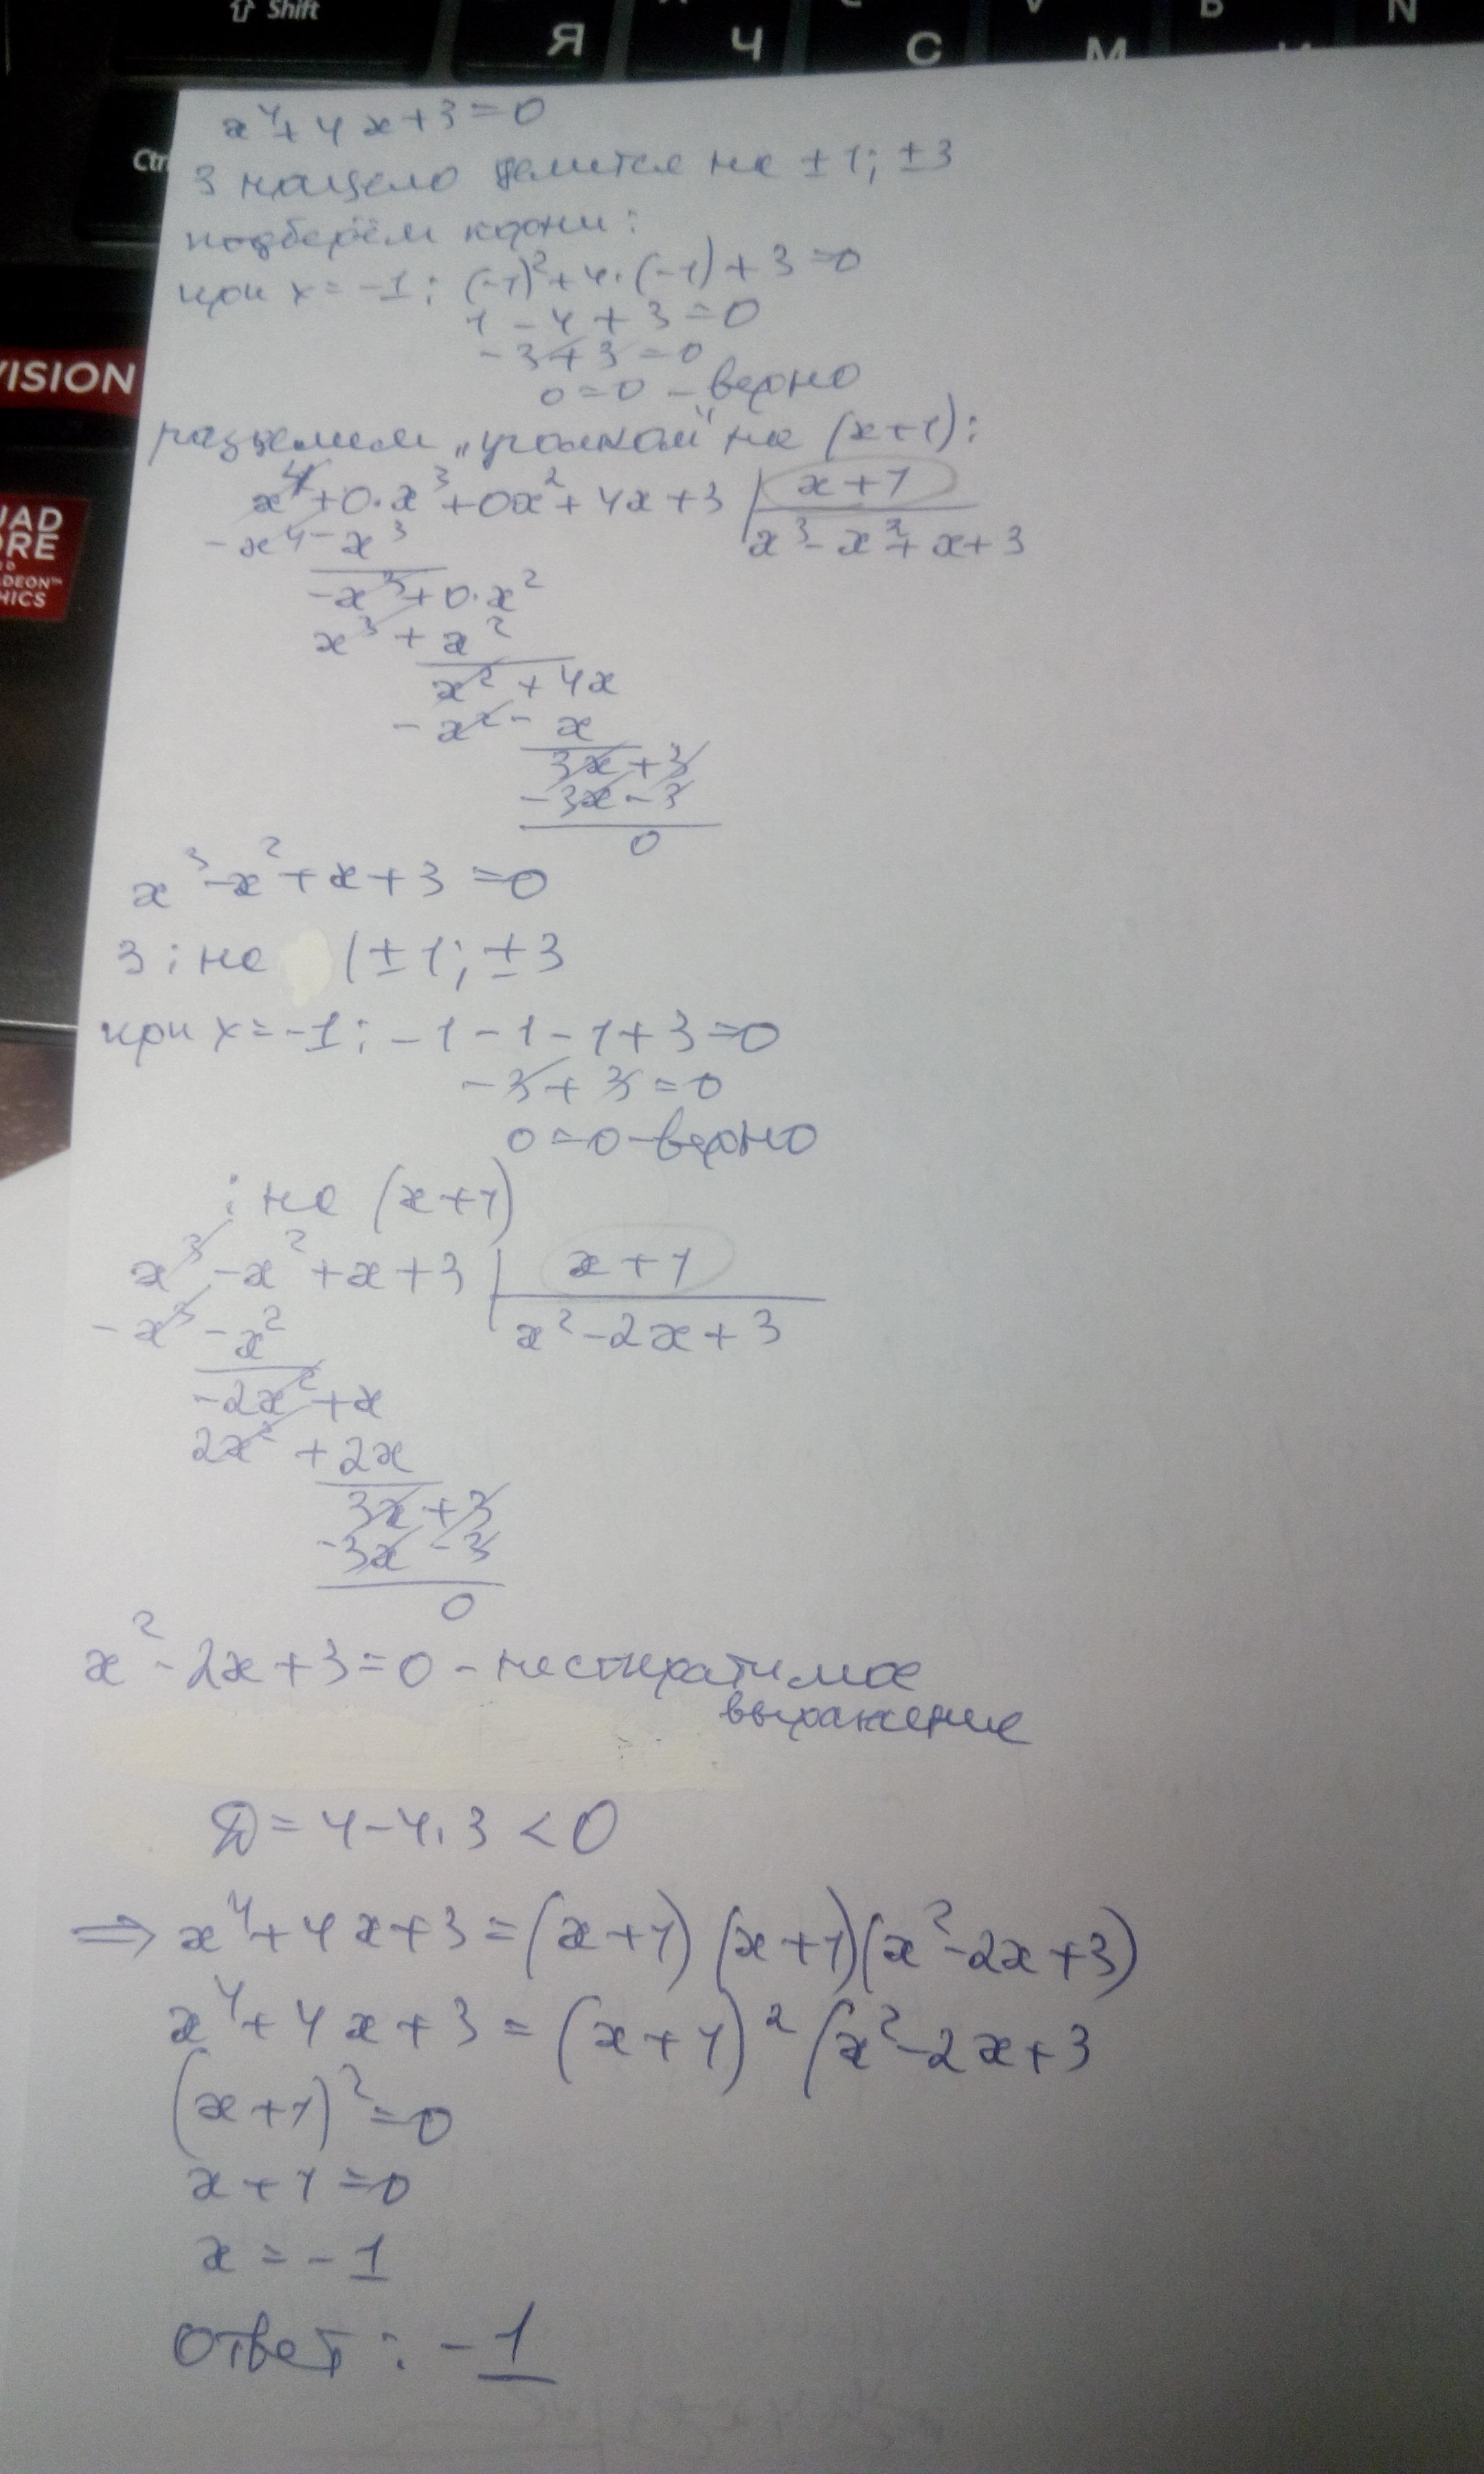 ⇧ Shift
Я Ч С М
Ctr
VISION
UAD
ORE
DEON™
HICS
x⁴+4x+3=0
3 нацело делится на ±1; ±3
подберём корни:
при x=-1: (-1)²+4·(-1)+3=0
1-4+3=0
-3+3=0
0=0 - верно
разделим „уголком" на (x+1):
x⁴+0·x³+0x²+4x+3 | x+1
-x⁴-x³ x³-x²+x+3
-x³+0·x²
x³+x²
x²+4x
-x²-x
3x+3
-3x-3
0
x³-x²+x+3=0
3 : на (±1; ±3
при x=-1: -1-1-1+3=0
-3+3=0
0=0-верно
: на (x+1)
x³-x²+x+3 | x+1
-x³-x² x²-2x+3
-2x²+x
2x²+2x
3x+3
-3x-3
0
x²-2x+3=0 - несократимое
выражение
D=4-4·3<0
⇒ x⁴+4x+3=(x+1)(x+1)(x²-2x+3)
x⁴+4x+3=(x+1)²(x²-2x+3
(x+1)²=0
x+1=0
x=-1
Ответ: -1